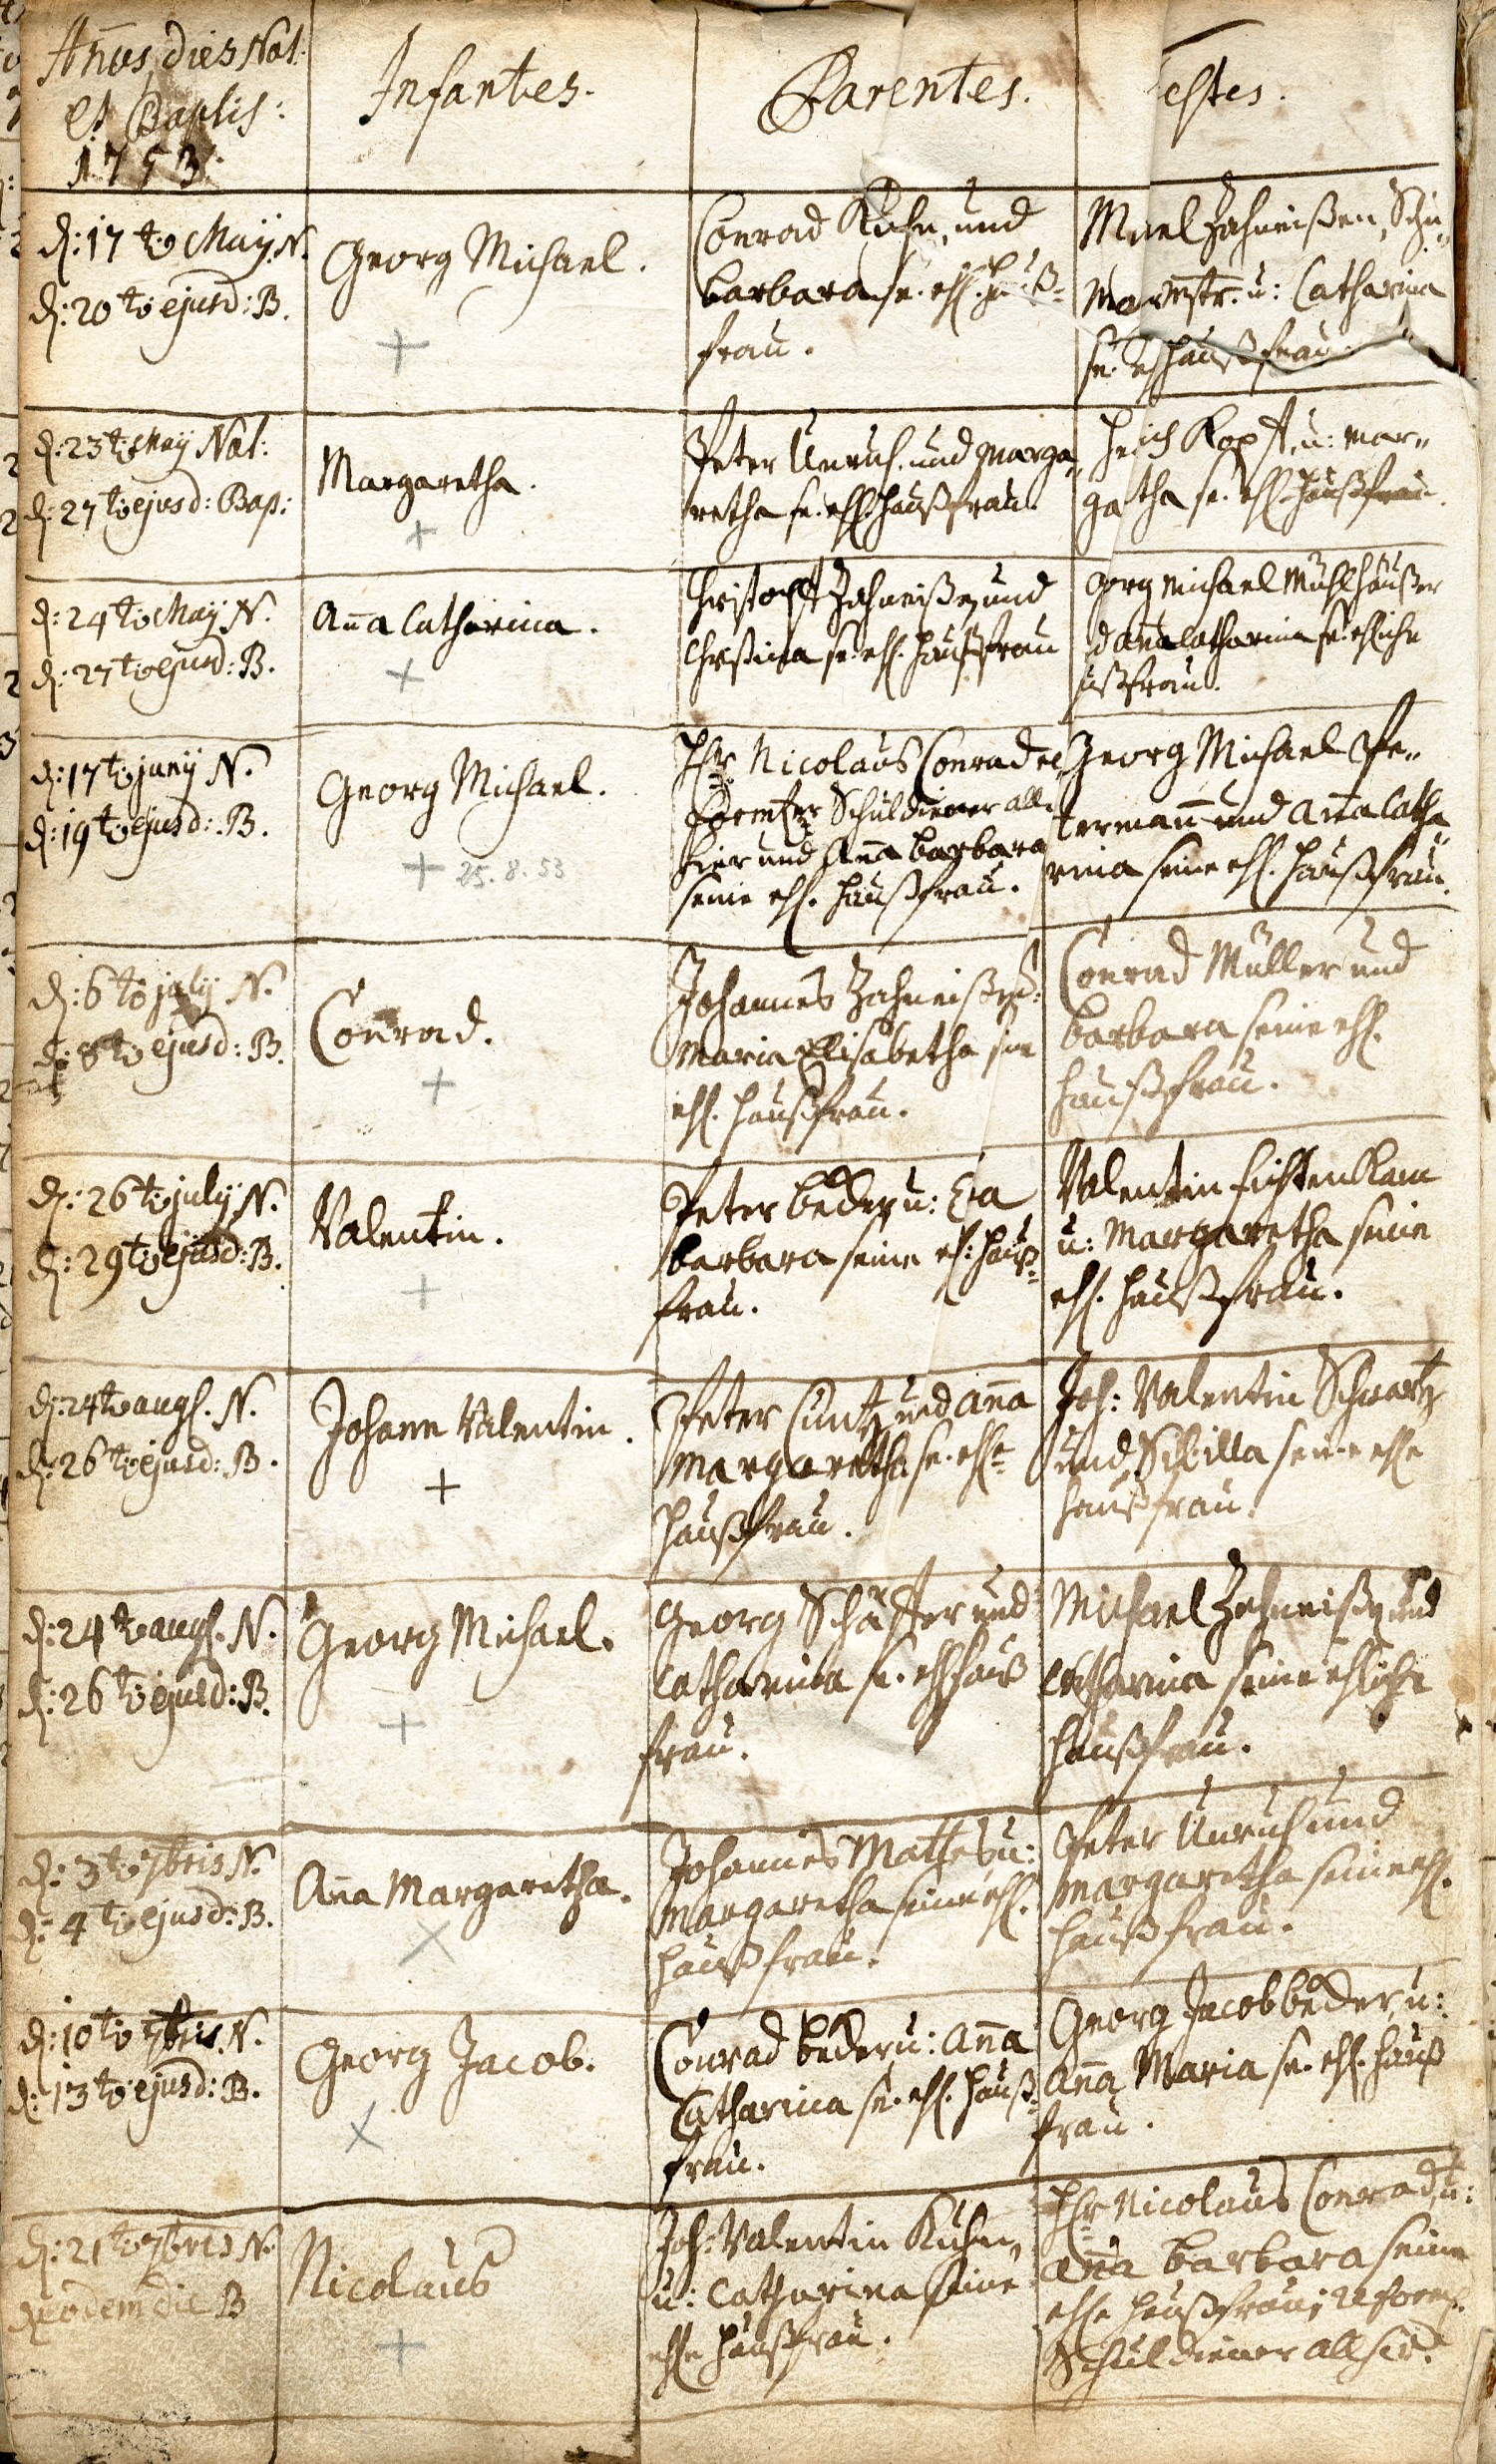 Añus dies Nat:
et Baptis:
1753.
Infantes.
Parentes.
Testes.
d: 17 to May. N.
d: 20 to ejusd: B.
Georg Michael.
+
Conrad Kuhn, und
barbara se. ehl. Hauß-
frau.
Zahneißen, Schu-
u: Catharina
se. Haußfrau.
d: 23 to May Nat:
d: 27 to ejusd: Bap:
Margaretha.
+
Peter Unruh und Marga-
retha se. ehl. Haußfrau.
Kopff, u: Mar-
gatha se. ehl. Haußfrau.
d: 24 to May N.
d: 27 to ejusd: B.
Aña Catharina.
+
Christoff Zahneißen und
Christina se. ehl. Haußfrau
Georg Michael Mühlhäußer
d aña Catharina se. ehliche
außfrau.
d: 17 to juny N.
d: 19 to ejusd: B.
Georg Michael.
+ 25. 8. 53
Hr. Nicolaus Conrad re-
formter Schuldiener all-
hier und Aña barbara
seine ehl. Haußfrau.
Georg Michael Pe-
termañ und aña Catha-
rina seine ehl. Haußfrau.
d: 6 to july N.
d: 8 to ejusd: B.
Conrad.
+
Johannes Zahneißen u:
Maria Elisabetha sein
ehl. Haußfrau.
Conrad Müller und
barbara seine ehl.
Haußfrau.
d: 26 to july N.
d: 29 to ejusd: B.
Valentin.
+
Peter beder u: Eva
barbara seine eh: Hauß-
frau.
Valentin Fichtenkam
u: Margaretha seine
ehl. Haußfrau.
d: 24 to augs. N.
d: 26 to ejusd: B.
Johann Valentin.
+
Peter Cuntz und aña
Margaretha se. ehle
Haußfrau.
Joh: Valentin Schwartz
und Sibilla seine ehle
Haußfrau.
d: 24 to augs. N.
d: 26 to ejusd: B.
Georg Michael.
+
Georg Schäffer und
Catharina se. ehl Hauß
frau.
Michael Zahneißen und
Catharina seine ehliche
Haußfrau.
d: 3 to 7bris N.
d: 4 to ejusd: B.
Aña Margaretha.
+
Johannes Mattes u:
Margaretha seine ehl.
Haußfrau.
Peter Unruh und
Margaretha seine ehl.
Haußfrau.
d: 10 to 7bris. N.
d: 13 to ejusd: B.
Georg Jacob.
+
Conrad beder u: Aña
Catharina se. ehl. Hauß-
frau.
Georg Jacob beder, u:
Aña Maria se. ehl. Hauß
frau.
d: 21 to 7bris N.
eodem die B
Nicolaus
+
Joh: Valentin Kuhn,
u: Catharina seine
ehle Haußfrau.
Hr. Nicolaus Conrad, u:
aña barbara seine
ehle Haußfrau; reform.
Schuldiener allhier.